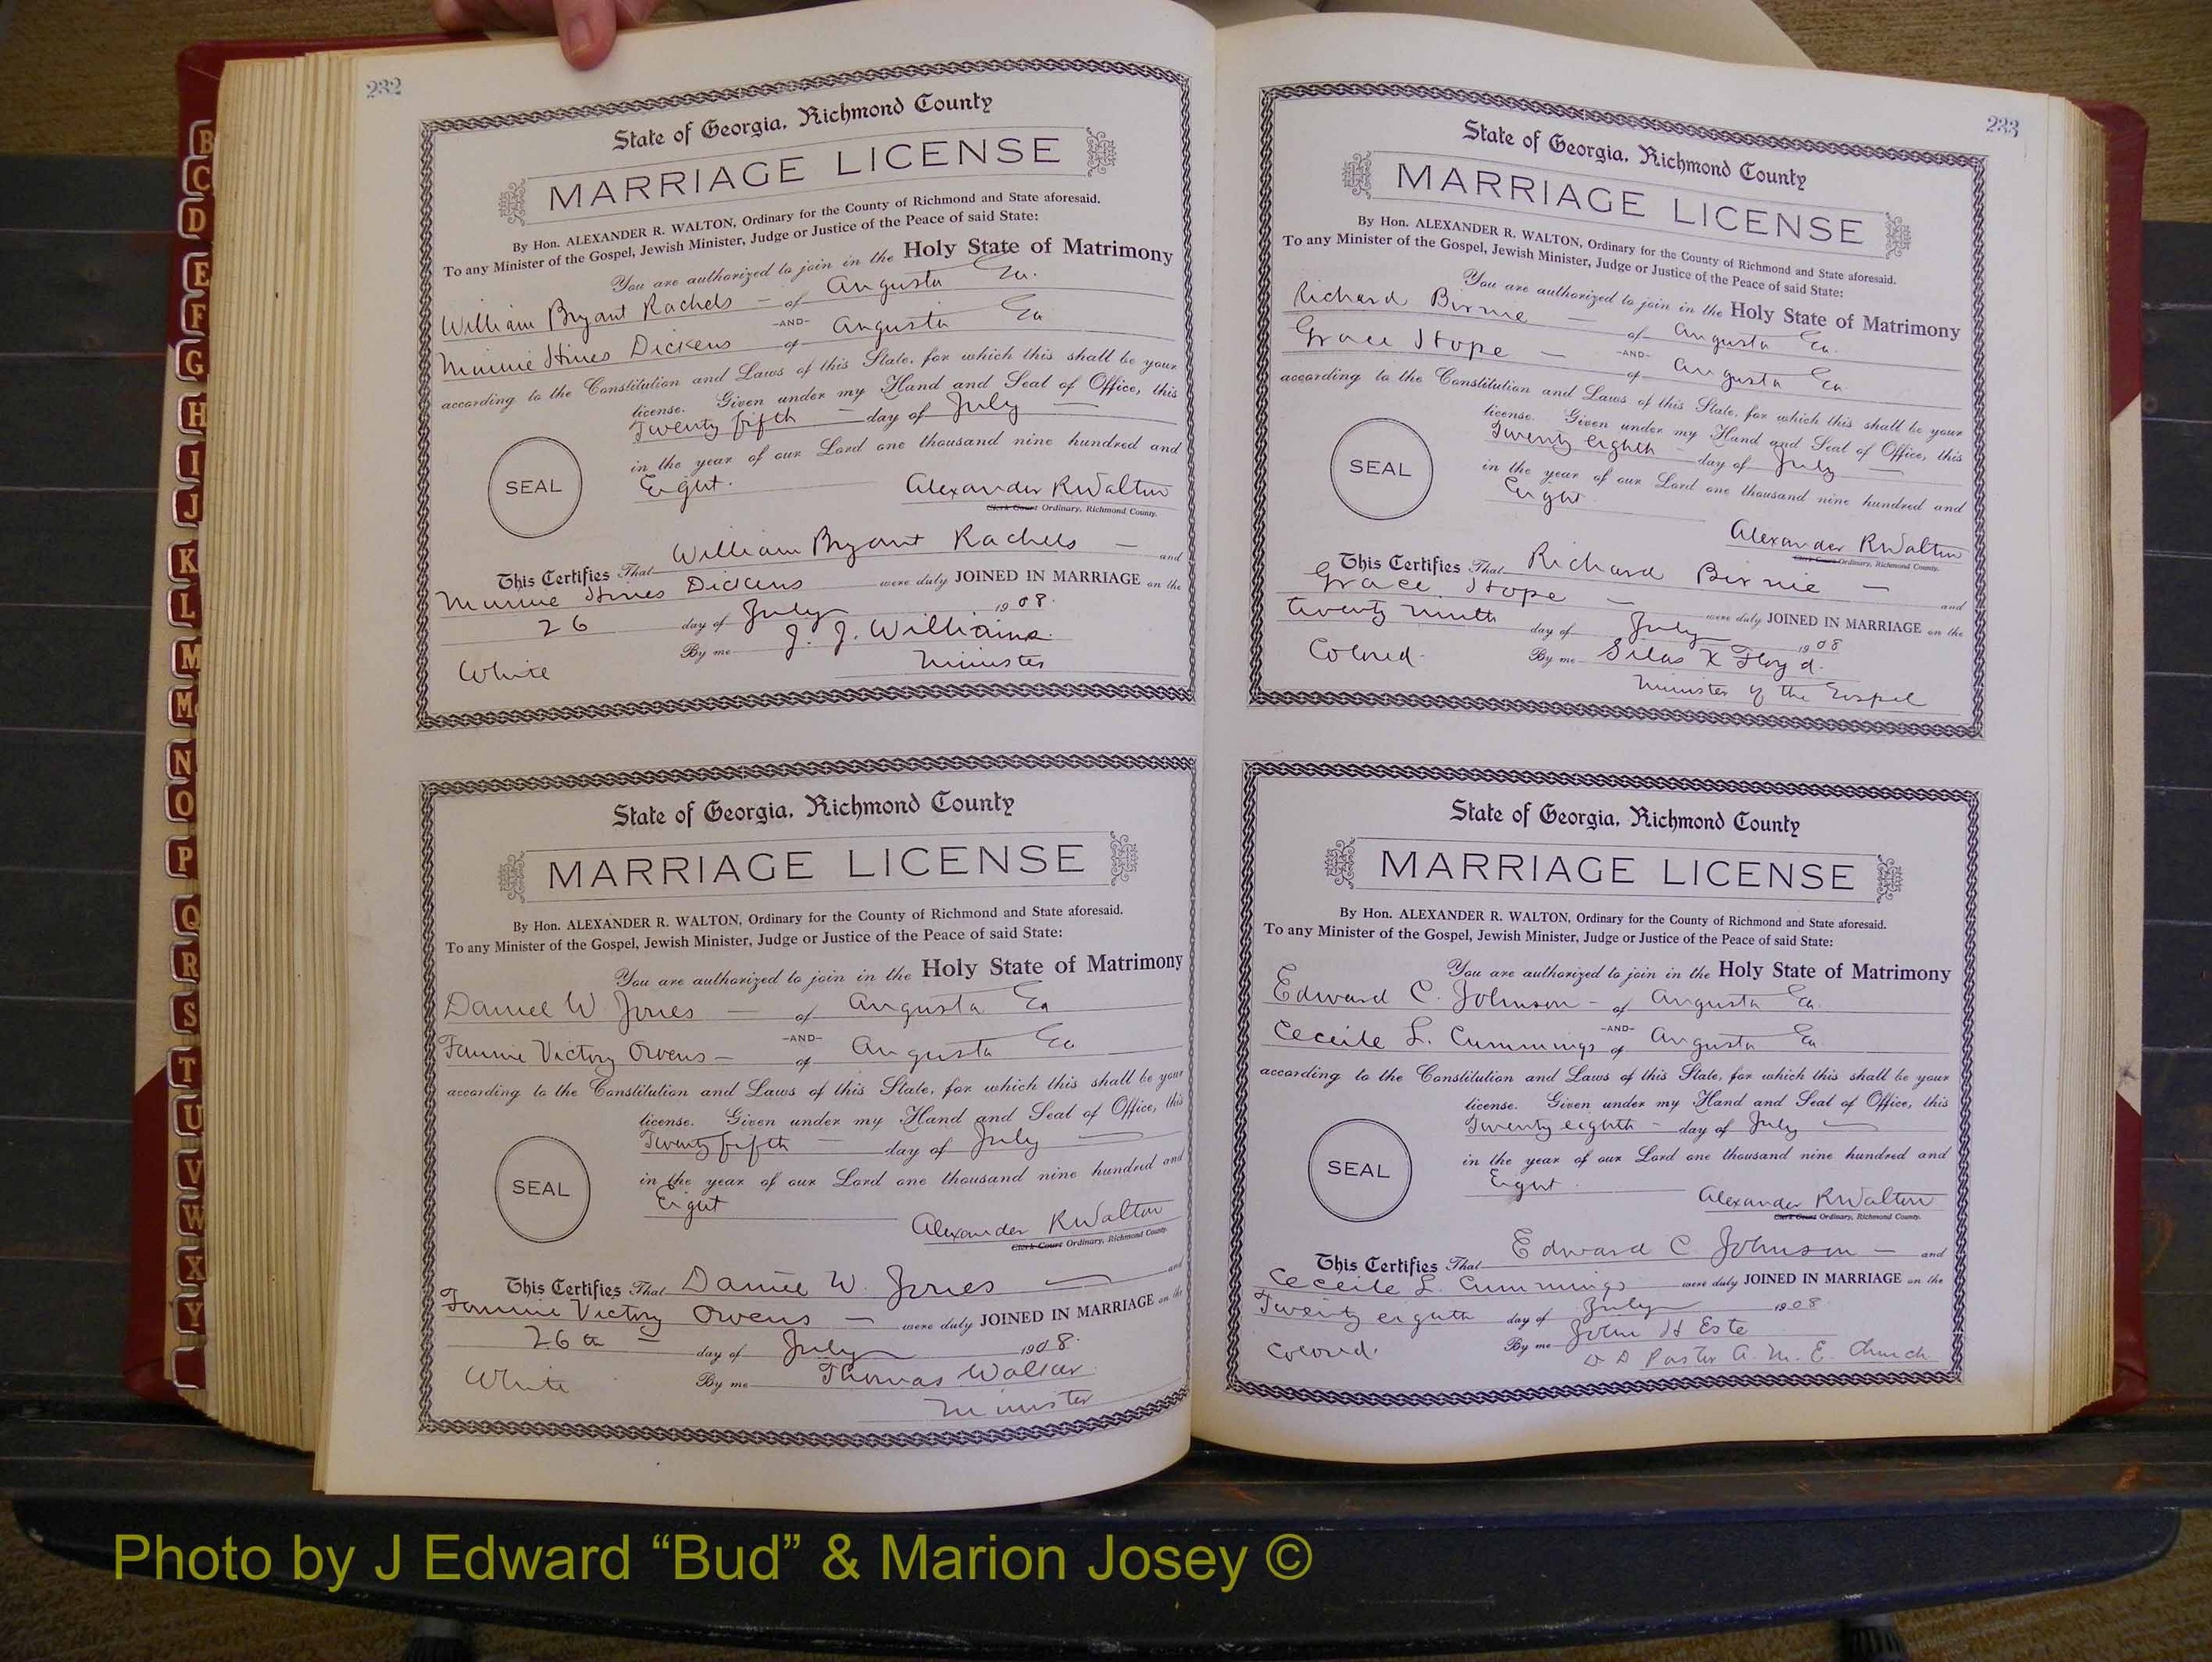 232
State of Georgia, Richmond County
MARRIAGE LICENSE
By Hon. ALEXANDER R. WALTON, Ordinary for the County of Richmond and State aforesaid.
To any Minister of the Gospel, Jewish Minister, Judge or Justice of the Peace of said State:
You are authorized to join in the Holy State of Matrimony
William Bryant Rachels — of Augusta Ga.
-AND-
Minnie Hines Dickens of Augusta Ga
according to the Constitution and Laws of this State, for which this shall be your
license. Given under my Hand and Seal of Office, this
Twenty fifth — day of July —
in the year of our Lord one thousand nine hundred and
SEAL
Eight.
Alexander R Walton
Clerk Court Ordinary, Richmond County.
This Certifies That William Bryant Rachels — and
Minnie Hines Dickens were duly JOINED IN MARRIAGE on the
26 day of July 1908.
By me J. J. Williams
White
Minister
State of Georgia, Richmond County
MARRIAGE LICENSE
By Hon. ALEXANDER R. WALTON, Ordinary for the County of Richmond and State aforesaid.
To any Minister of the Gospel, Jewish Minister, Judge or Justice of the Peace of said State:
You are authorized to join in the Holy State of Matrimony
Daniel W Jones — of Augusta Ga
-AND-
Fannie Victory Owens — of Augusta Ga
according to the Constitution and Laws of this State, for which this shall be your
license. Given under my Hand and Seal of Office, this
Twenty fifth — day of July —
in the year of our Lord one thousand nine hundred and
SEAL
Eight
Alexander R Walton
Clerk Court Ordinary, Richmond County.
This Certifies That Daniel W. Jones — and
Fannie Victory Owens — were duly JOINED IN MARRIAGE on the
26th day of July 1908.
White By me Thomas Walker
Minister
233
State of Georgia, Richmond County
MARRIAGE LICENSE
By Hon. ALEXANDER R. WALTON, Ordinary for the County of Richmond and State aforesaid.
To any Minister of the Gospel, Jewish Minister, Judge or Justice of the Peace of said State:
You are authorized to join in the Holy State of Matrimony
Richard Birnie — of Augusta Ga.
-AND-
Grace Hope — of Augusta Ga
according to the Constitution and Laws of this State, for which this shall be your
license. Given under my Hand and Seal of Office, this
Twenty eighth — day of July —
in the year of our Lord one thousand nine hundred and
SEAL
Eight
Alexander R Walton
Clerk Court Ordinary, Richmond County.
This Certifies That Richard Birnie — and
Grace Hope — were duly JOINED IN MARRIAGE on the
twenty ninth day of July 1908
Colored. By me Silas X Floyd.
Minister of the Gospel
State of Georgia, Richmond County
MARRIAGE LICENSE
By Hon. ALEXANDER R. WALTON, Ordinary for the County of Richmond and State aforesaid.
To any Minister of the Gospel, Jewish Minister, Judge or Justice of the Peace of said State:
You are authorized to join in the Holy State of Matrimony
Edward C. Johnson — of Augusta Ga.
-AND-
Ceceile L. Cummings of Augusta Ga
according to the Constitution and Laws of this State, for which this shall be your
license. Given under my Hand and Seal of Office, this
Twenty eighth — day of July —
in the year of our Lord one thousand nine hundred and
SEAL
Eight.
Alexander R Walton
Clerk Court Ordinary, Richmond County.
This Certifies That Edward C Johnson — and
Ceceile L. Cummings were duly JOINED IN MARRIAGE on the
Twenty eighth day of July 1908
Colored. By me John H Este
D D Pastor A. M. E. Church
B
C
D
E
F
G
H
I
J
K
L
M
Mc
N
O
P
Q
R
S
T
U
V
W
X
Y
Photo by J Edward “Bud” & Marion Josey ©